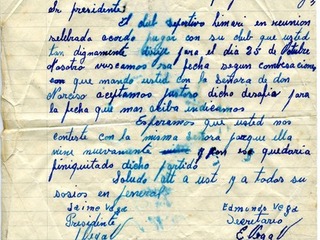 Sr presidente
El club deportivo Limari en reunion
selebrada acordo pagar con su club que usted
tan dignamente para el dia 25 de Octubre
Nosotro buscamos esa fecha segun combersacion
con que mando usted con la Señora de don
Narciso aceptamos justoso dicho desafia para
la fecha que mas ariba indicamos
Esperamos que usted nos
conteste con la misma señora porque ella
vine nuevamente y por
finiquitado dicho partido
Saludo att a ust y a todos su
sosios en jeneral
Jaime Vega Edmundo Vega
Presidente Secretario
JVega V E Vega V